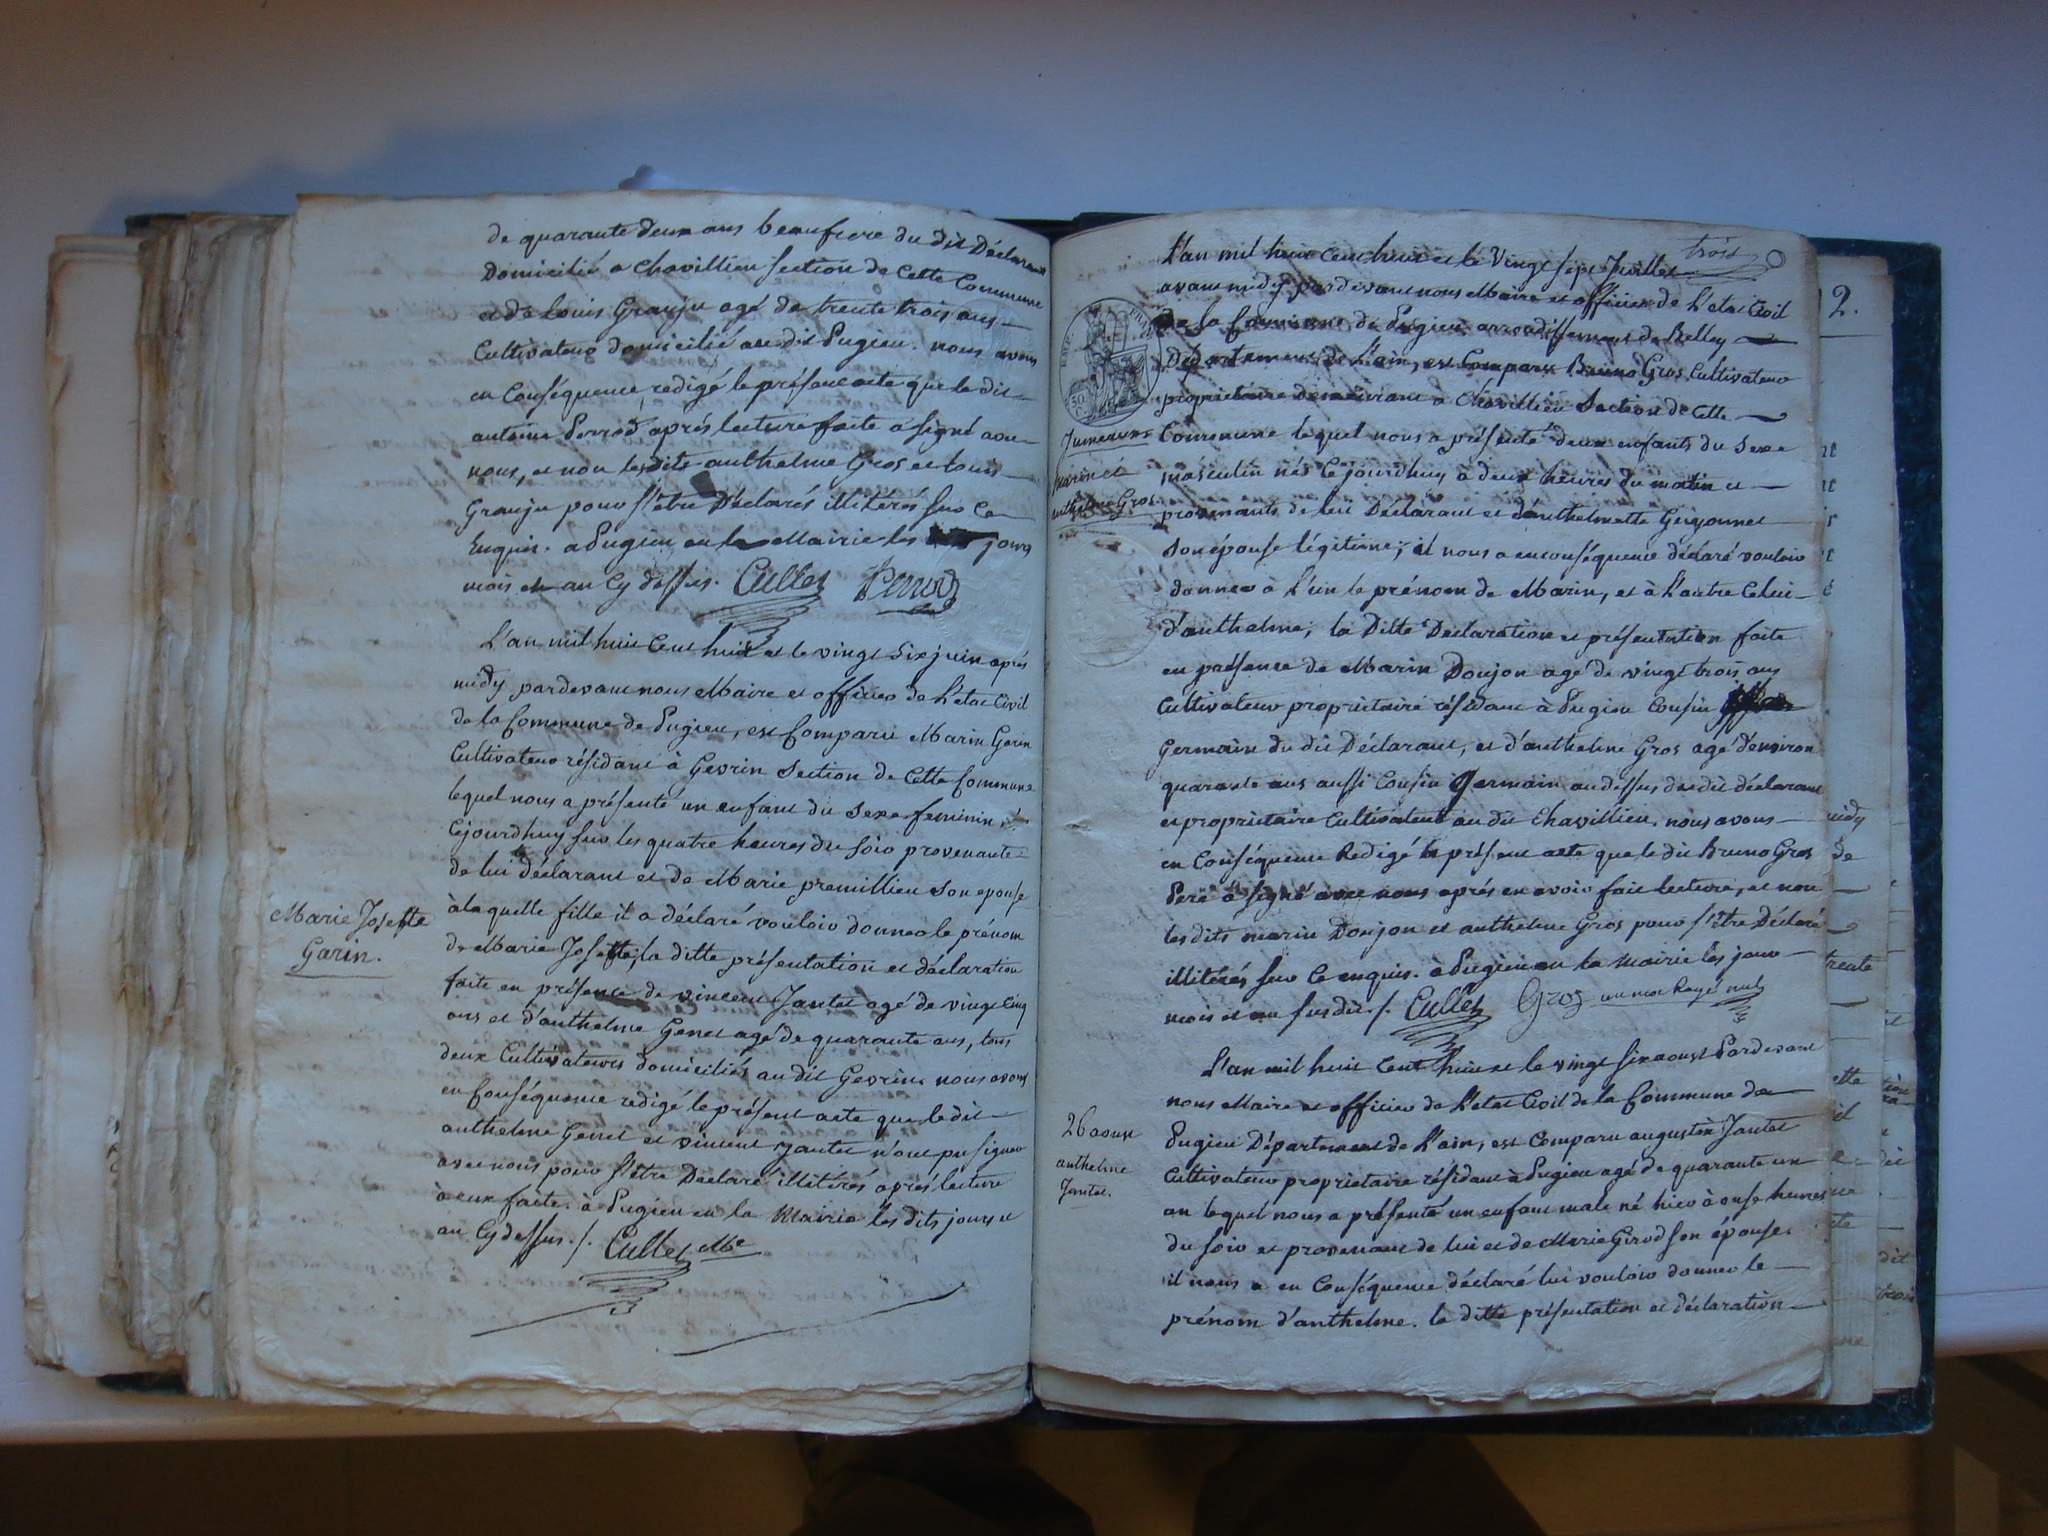 de quarante deux ans beaufrere du dit Déclarant
Domicilié a Chavillieu section de Cette Commune
et de Louis Granju agé de trente trois ans
Cultivateur domicilié au dit Pugieu. nous avons
en Conséquence redigé le présent acte que le dit
antoine Perrod après lecture faite a signé avec
nous, et non les dits anthelme Gros et Louis
Granju pour s'être Déclarés illitérés sur Ce
Enquis. a Pugieu en la Mairie les jours
mois et an Cy dessus. Cullet Perrod
L'an mil huit Cent huit et le vingt six juin après
midy pardevant nous Maire et officier de L'etat Civil
de la Commune de Pugieu, est Comparu Marin Garin
Cultivateur résidant a Gevrin Section de Cette Commune
lequel nous a présenté un enfant du Sexe feminin né
Cejourdhuy sur les quatre heures du soir provenante
de lui déclarant et de Marie premillieu Son epouse
à laquelle fille il a déclaré vouloir donner le prénom
Marie Josette
Garin.
de Marie Josette, la ditte présentation et déclaration
faite en présence de vincent Jantet agé de vingt Cinq
ans et d'anthelme Genet agé de quarante ans, tous
deux Cultivateurs domiciliés au dit Gevrin. nous avons
en Conséquence redigé le présent acte que le dit
anthelme Genet et vincent Jantet n'ont pu signer
avec nous pour s'être Déclaré illitérés après lecture
à eux faite. à Pugieu en la Mairie les dits jours et
an Cydessus ./. Cullet Me
trois
L'an mil huit Cent huit et le Vingt sept Juillet
avant midy pardevant nous Maire et officier de L'etat Civil
de la Commune de Pugieu arrondissement de Belley
Département de L'ain, est Comparu Bruno Gros Cultivateur
propriétaire demeurant a Chavillieu Section de Cette
Jumeaux
Marin et
anthelme Gros
Commune lequel nous a présenté deux enfants du Sexe
masculin nés Cejourdhuy à deux heures du matin et
provenants de lui Déclarant et d'anthelmette Guyonnet
Son épouse légitime; il nous a en conséquence déclaré vouloir
donner à L'un le prénom de Marin, et à L'autre Celui
d'anthelme, la Ditte Déclaration et présentation faite
en présence de Marin Doujon agé de vingt trois ans
Cultivateur propriétaire résidant à Pugieu Cousin
Germain du dit Déclarant, et d'anthelme Gros agé d'environ
quarante ans aussi Cousin Germain au dessus du dit déclarant
et propriétaire Cultivateur au dit Chavillieu. nous avons
en Conséquence Redigé le présent acte que le dit Bruno Gros
Pere à signé avec nous après en avoir fait lecture, et non
les dits marin Doujon et anthelme Gros pour s'être Déclaré
illitérés sur Ce enquis. à Pugieu en la Mairie les jour
mois et an susdit ./. Cullet Gros un mot Rayé nul
L'an mil huit Cent huit et le vingt six aoust Pardevant
nous Maire et officier de L'etat Civil de la Commune de
26 aoust
anthelme
Jantet.
Pugieu Département de L'ain, est Comparu augustin Jantet
Cultivateur propriétaire résidant à Pugieu agé de quarante un
an lequel nous a présenté un enfant male né hier à onse heures
du soir et provenant de lui et de Marie Girod son épouse.
il nous a en Conséquence déclaré lui vouloir donner le
prénom d'anthelme. la ditte présentation et déclaration
2.